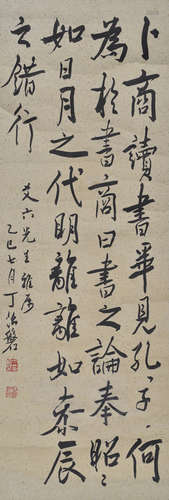 卜商讀書畢見孔〻子〻何
為於書商曰書之論奉昭〻
如日月之代明離離如參辰
之錯行
艾六先生雅属
乙巳七月丁